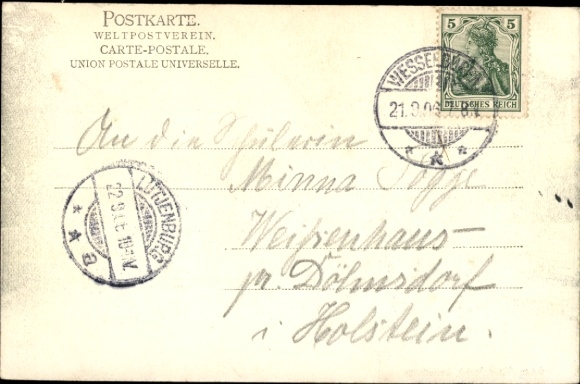 POSTKARTE.
WELTPOSTVEREIN.
CARTE-POSTALE.
UNION POSTALE UNIVERSELLE.
5 5
DEUTSCHES REICH
21.9.06
LÜTJENBURG
22.9.06
a
An die Schülerin
Minna
Weißenhaus-
pr. Döhnsdorf
i Holstein.